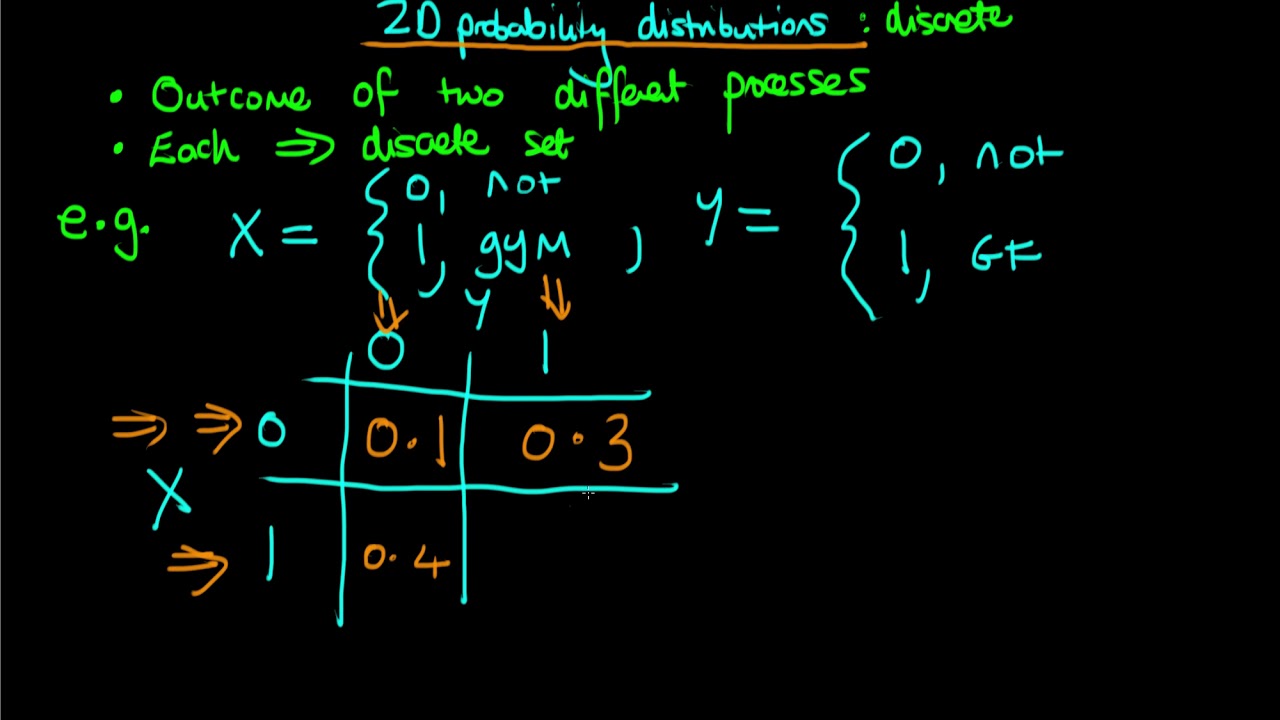 2D probability distributions : discrete
• Outcome of two different processes
• Each ⇒ discrete set
e.g. X = { 0, not
1, gym , Y = { 0, not
1, GF
Y
0 1
⇒ ⇒ 0 0.1 0.3
X
⇒ 1 0.4